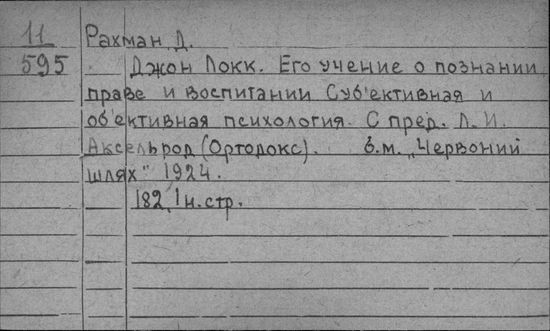 11
595
Рахман Д.
Джон Локк. Его учение о познании,
праве и воспитании Суб'ективная и
об'ективная психология. С пред. Л. И.
Аксельрод (Ортодокс). б.м. „Червоний
шлях" 1924.
182, 1 н. стр.